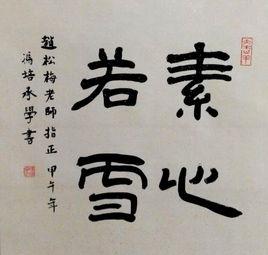 素心
若雪
趙松梅老師指正 甲午年
馮培承學書